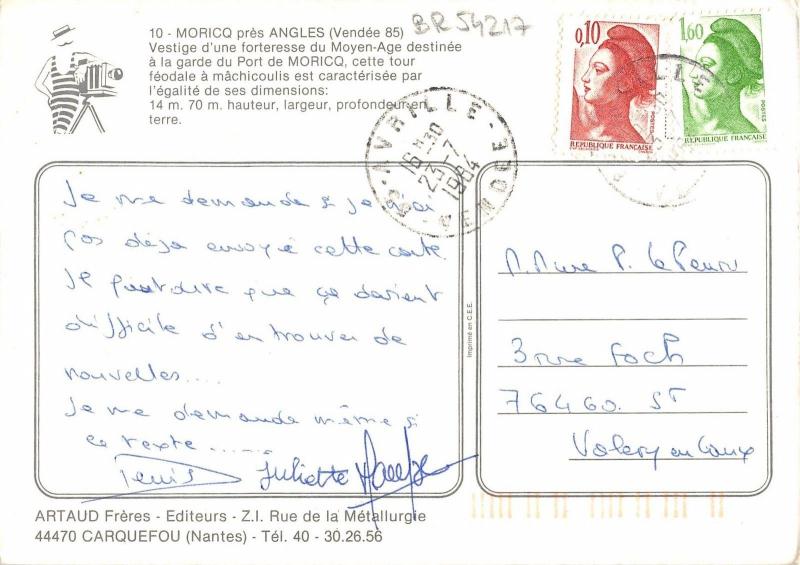 10 - MORICQ près ANGLES (Vendée 85)
Vestige d'une forteresse du Moyen-Age destinée
à la garde du Port de MORICQ, cette tour
féodale à mâchicoulis est caractérisée par
l'égalité de ses dimensions:
14 m. 70 m. hauteur, largeur, profondeur en
terre.
BR 54217
0,10
POSTES
REPUBLIQUE FRANÇAISE
1,60
POSTES
REPUBLIQUE FRANÇAISE
AVRILLE
16H30
23-7
1984
VENDEE
Je me demande si je n'ai
pas déjà envoyé cette carte.
Je peut dire que ça devient
difficile d'en trouver de
nouvelles....
Je me demande même si
ce texte......
Denis Juliette
Imprimé en C.E.E.
3 rue Foch
76460. ST
Valery en Caux
ARTAUD Frères - Editeurs - Z.I. Rue de la Métallurgie
44470 CARQUEFOU (Nantes) - Tél. 40 - 30.26.56